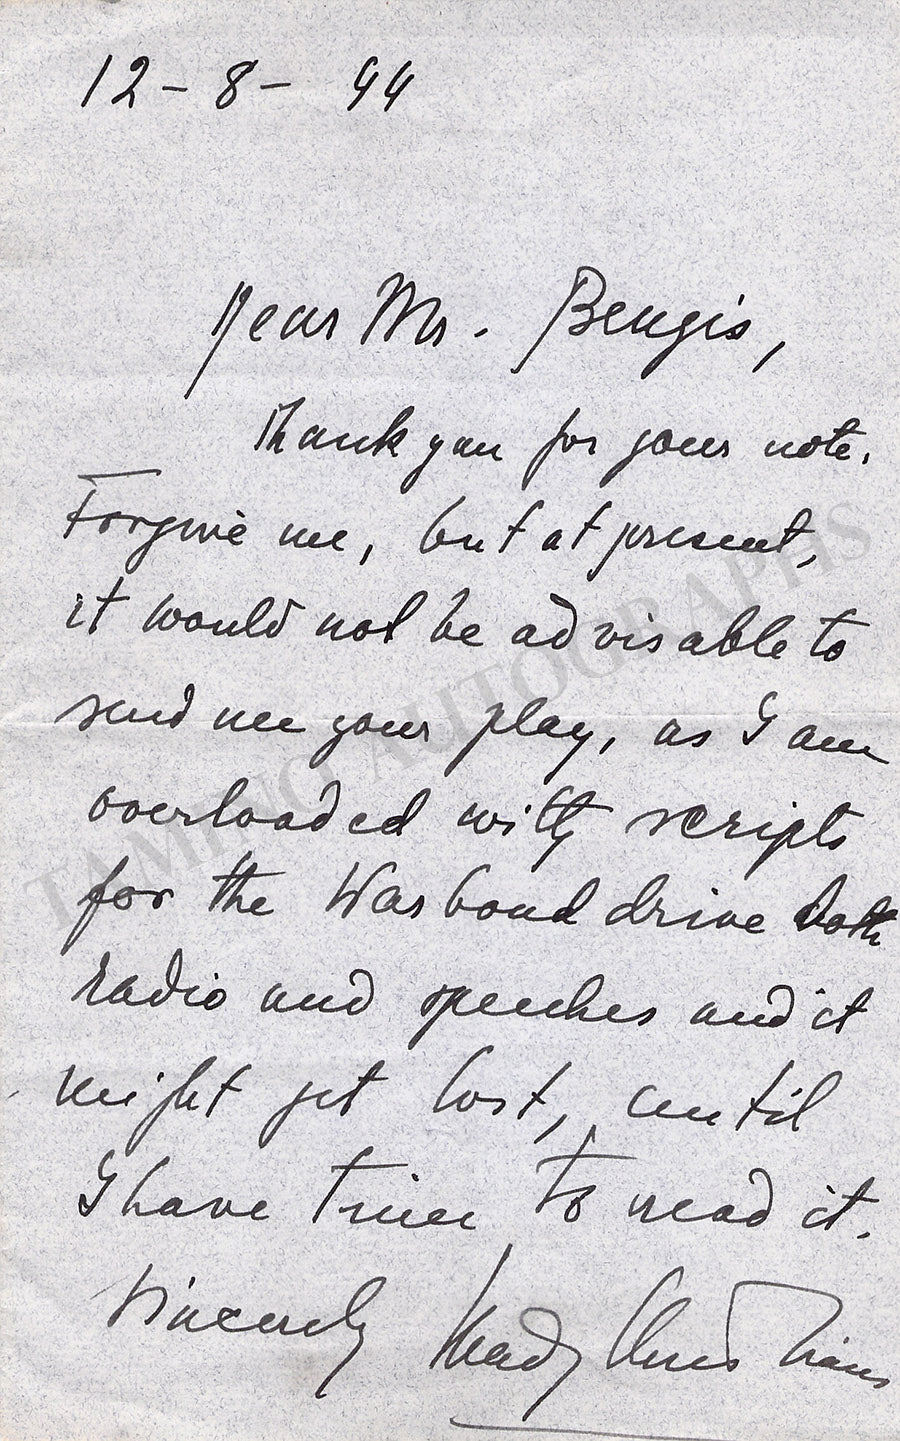 12-8-44
Dear Mr. Bengis,
Thank you for your note.
Forgive me, but at present,
it would not be advisable to
send me your play, as I am
overloaded with scripts
for the War bond drive both
radio and speeches and it
might get lost, until
I have time to read it.
Sincerely Mady Christians
TAMINO AUTOGRAPHS